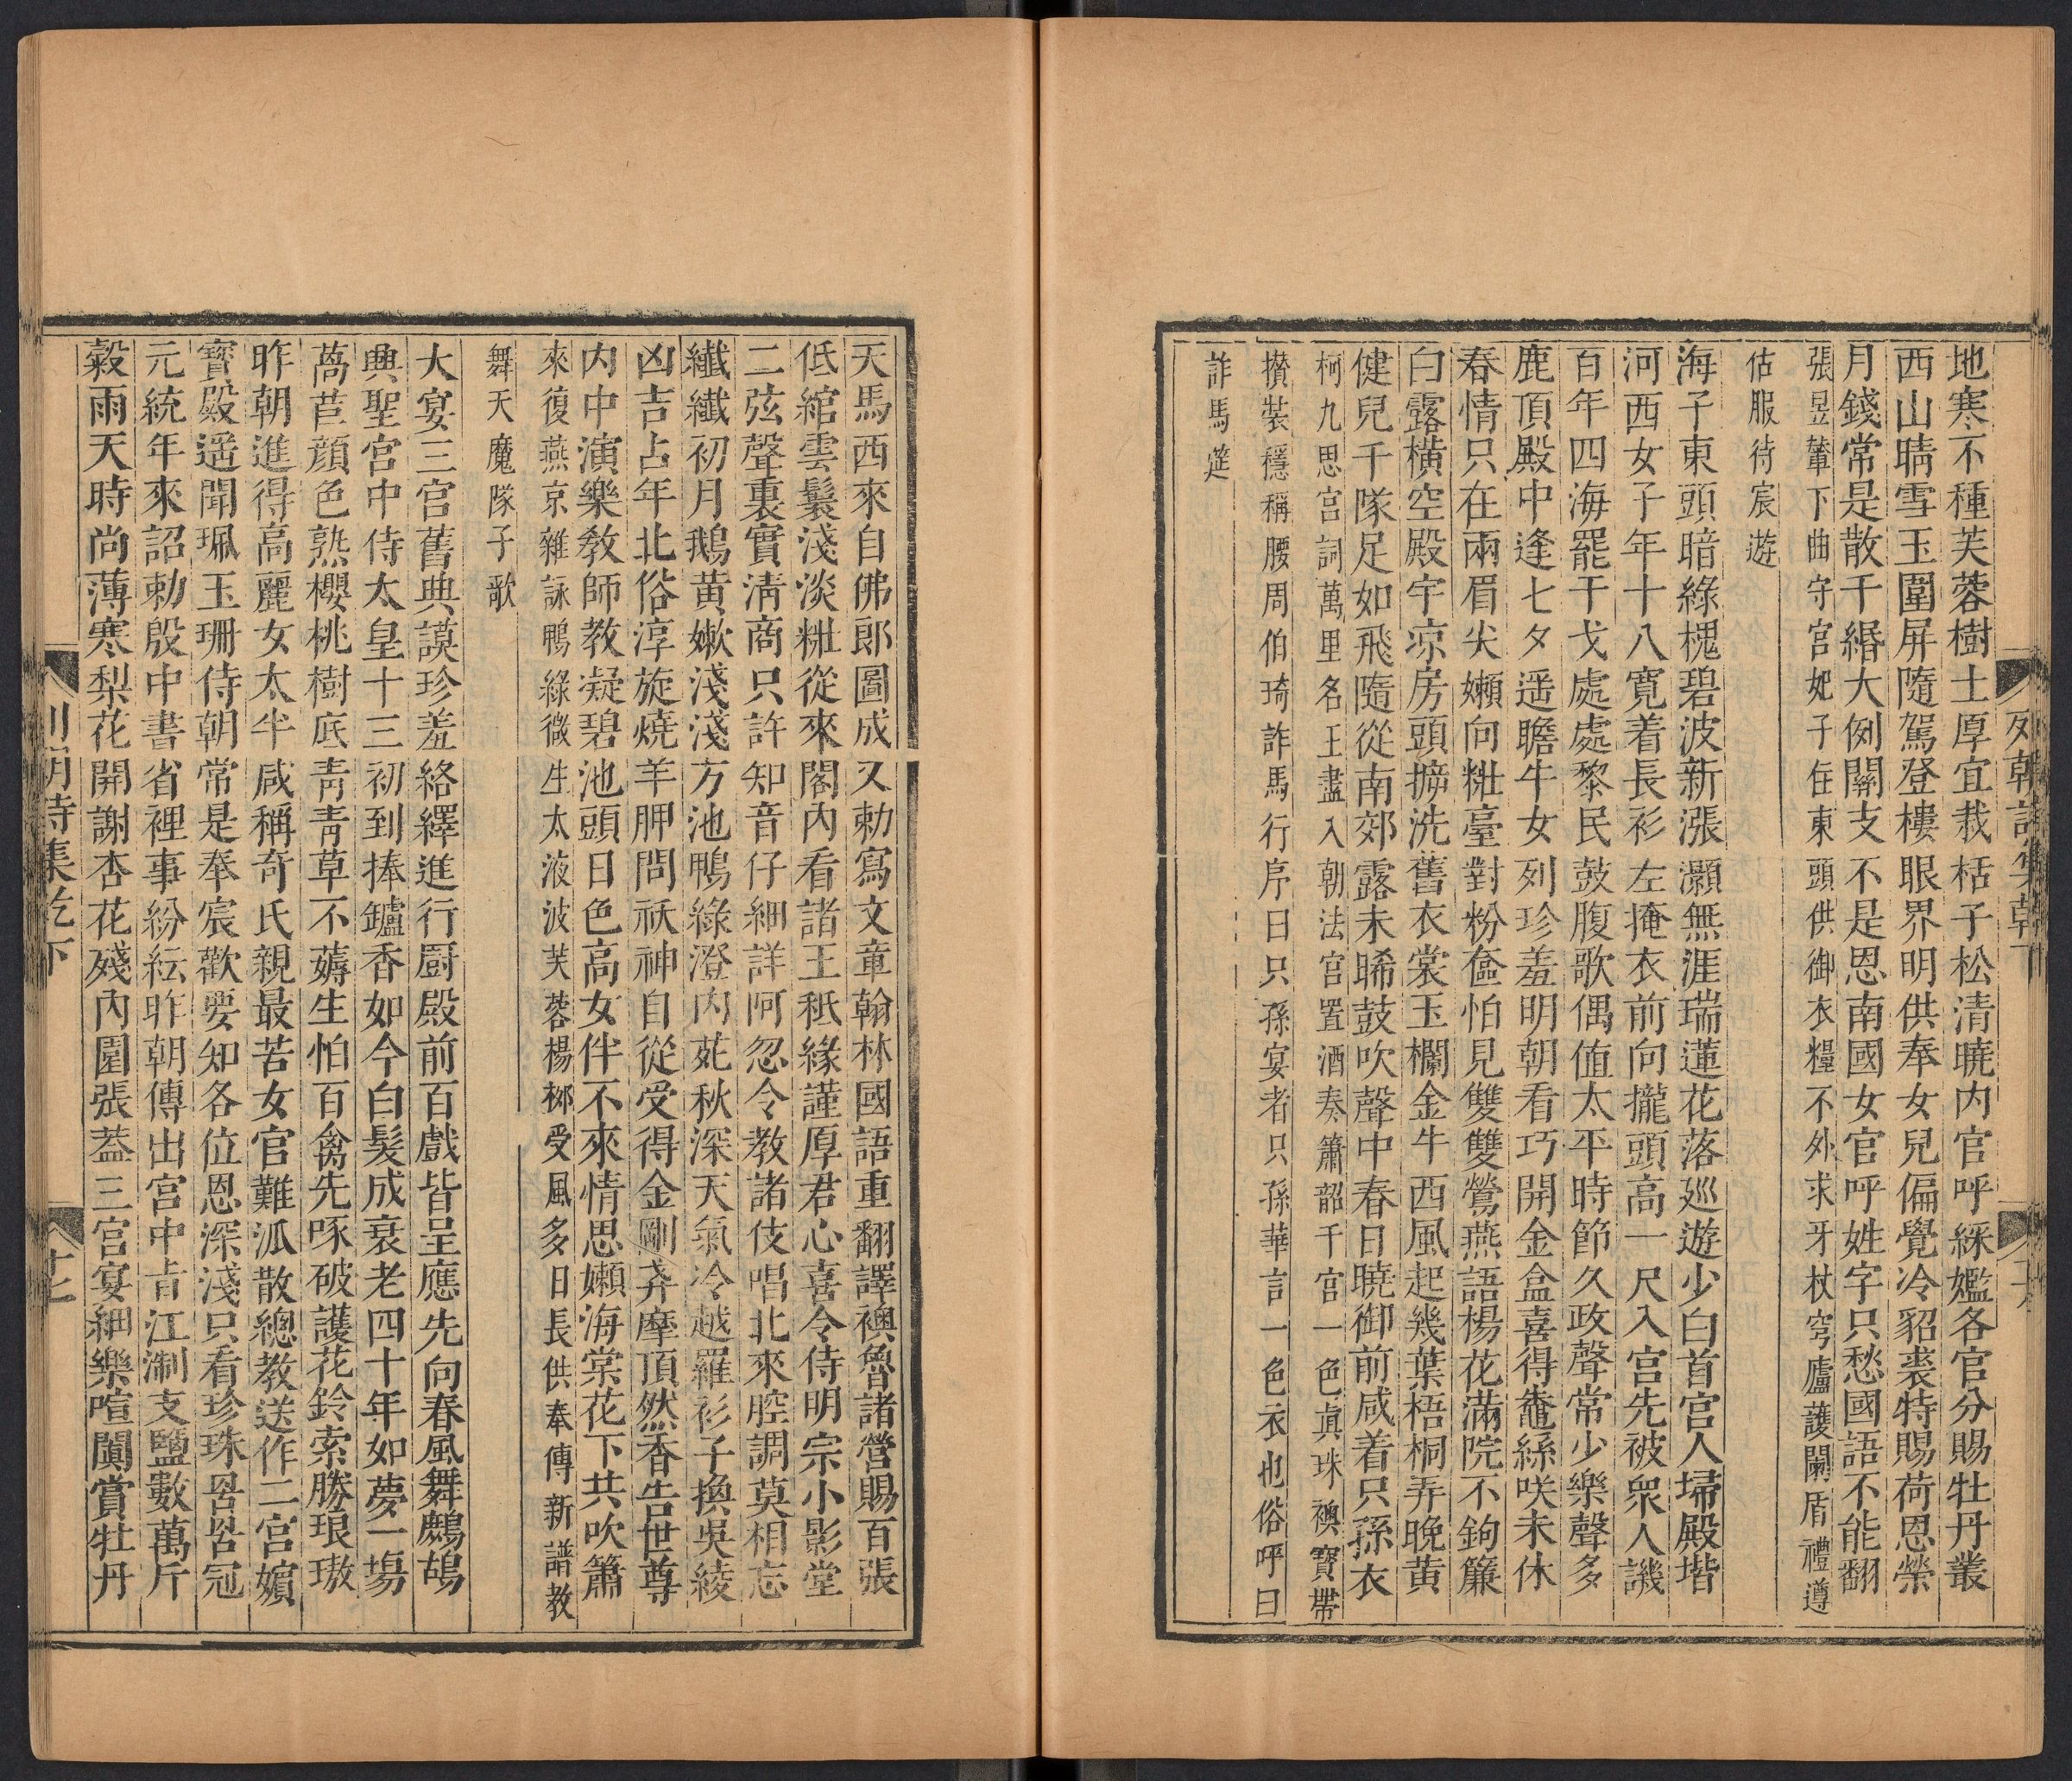 地寒不種芙蓉樹土厚宜栽栝子松清曉内官呼綵嬺各官分賜牡丹叢
西山晴雪玉圍屏隨駕登樓眼界明供奉女兒偏覺冷貂裘特賜荷恩榮
月錢常是散千緡大例關支不是恩南國女官呼姓字只愁國語不能翻
張昱輦下曲守宫妃子住東頭供御衣糧不外求牙杖穹廬護闌盾禮遵
估服待宸遊
海子東頭暗綠槐碧波新漲灝無涯瑞蓮花落廵遊少白首宫人掃殿堦
河西女子年十八寬着長衫左掩衣前向攏頭高一尺入宫先被衆人譏
百年四海罷干戈處處黎民鼓腹歌偶值太平時節久政聲常少樂聲多
鹿頂殿中逢七夕遥瞻牛女列珍羞明朝看巧開金盒喜得蠶絲咲未休
春情只在兩眉尖嬾向粧臺對粉奩怕見雙雙鶯燕語楊花滿院不鉤簾
白露横空殿宇凉房頭擴洗舊衣裳玉欄金牛西風起幾葉梧桐弄晚黄
健兒千隊足如飛隨從南郊露未晞鼓吹聲中春日曉御前咸着只孫衣
柯九思宫詞萬里名王盡入朝法宫置酒奏簫韶千官一色眞珠襖寶帶
攢裝穩稱腰周伯琦詐馬行序曰只孫宴者只孫華言一色衣也俗呼曰
詐馬筵
天馬西來自佛郎圖成又勅寫文章翰林國語重翻譯襖魯諸營賜百張
低綰雲鬟淺淡粧從來閣内看諸王秪緣謹厚君心喜令侍明宗小影堂
二弦聲裏實淸商只許知音仔細詳阿忽令教諸伎唱北來腔調莫相忘
纖纖初月鵝黄嫩淺淺方池鴨綠澄内苑秋深天氣冷越羅衫子換吳綾
凶吉占年北俗淳旋燒羊胛問祅神自從受得金剛弆摩頂然香告世尊
内中演樂敎師教凝碧池頭日色高女伴不來情思嬾海棠花下共吹簫
來復燕京雜詠鴨綠微生太液波芙蓉楊柳受風多日長供奉傳新譜教
舞天魔隊子歌
大宴三宫舊典謨珍羞絡繹進行厨殿前百戲皆呈應先向春風舞鷓鴣
典聖宫中侍太皇十三初到捧鑪香如今白髮成衰老四十年如夢一塲
萵苣顔色熟櫻桃樹底青青草不薅生怕百禽先啄破護花鈴索勝琅璈
昨朝進得高麗女太半咸稱奇氏親最苦女官難派散總教送作二宫嬪
寳殿遥聞珮玉珊侍朝常是奉宸歡要知各位恩深淺只看珍珠罟罟冠
元統年來詔勅殷中書省裡事紛紜昨朝傳出宫中㫖江淛支鹽數萬斤
穀雨天時尚薄寒梨花開謝杏花殘内園張葢三宫宴細樂喧闐賞牡丹
列朝詩集乾下
十七